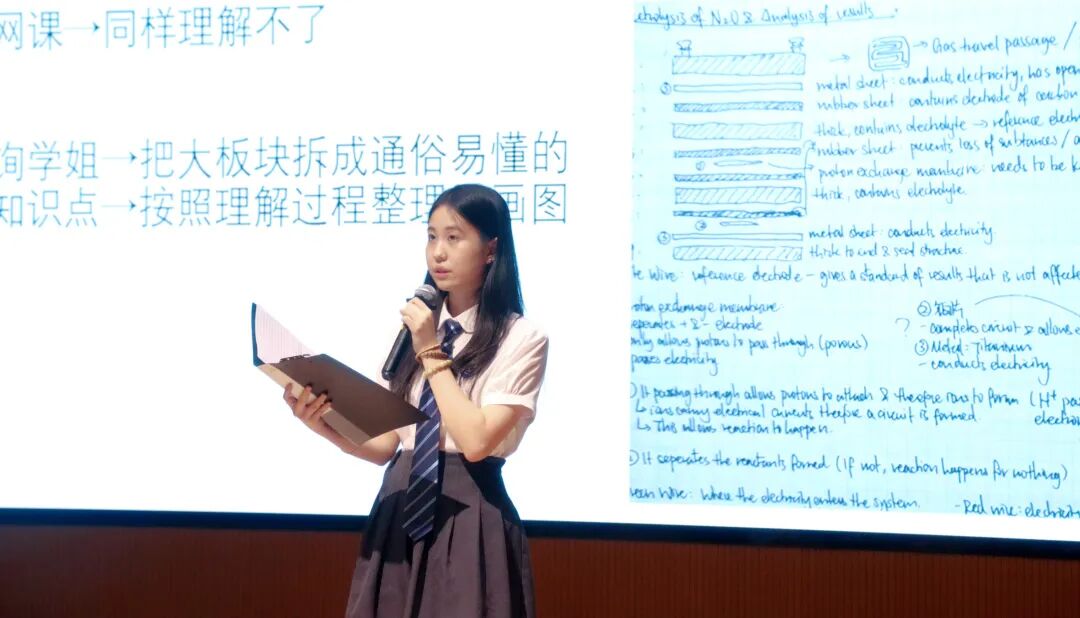 网课→同样理解不了
询学姐→把大板块拆成通俗易懂的
知识点→按照理解过程整理 画图
Electrolysis of N2O & Analysis of results.
→ → Gas travel passage /
③ metal sheet: conducts electricity, has open
rubber sheet: contains electrode of carbon
thick, contains electrolyte → reference electr
rubber sheet: prevents loss of substances /
② proton exchange membrane: needs to be k
thick, contains electrolyte.
②
③ metal sheet: conducts electricity.
thick to end & seal structure.
te wire: reference electrode - gives a standard of results that is not affecte
roton exchange membrane
seperates + & - electrode
only allows protons to pass through (porous)
passes electricity
②
? - completes circuit & allows e
③ Metal: Titanium
- conducts electricity
) It passing through allows protons to attach & therefore ions to form (H+ pas
↳ ions carry electrical currents therefore a circuit is formed. electron
↳ This allows reaction to happen.
) It seperates the reactants formed (If not, reaction happens for nothing)
reen wire: where the electricity enters the system. - Red wire: electricity